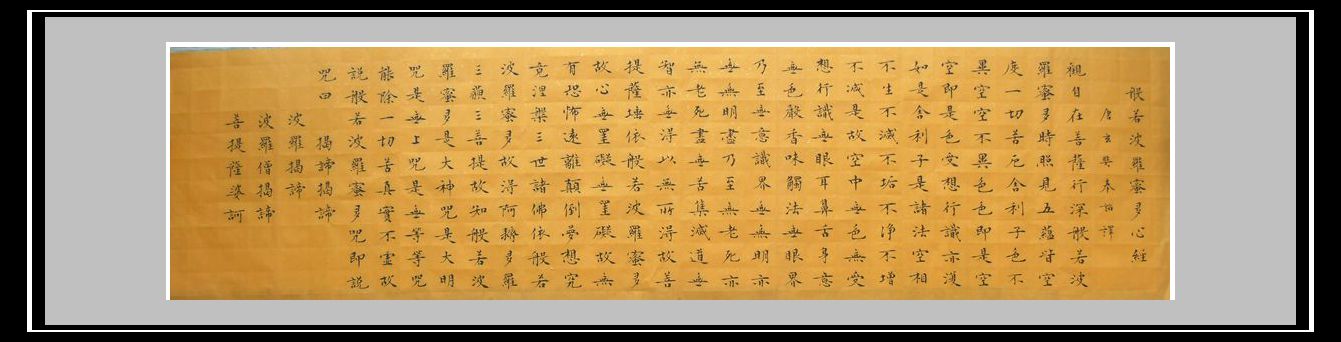 般若波羅蜜多心經
唐玄奘奉詔譯
觀自在菩薩行深般若波
羅蜜多時照見五蘊皆空
度一切苦厄舍利子色不
異空空不異色色即是空
空即是色受想行識亦復
如是舍利子是諸法空相
不生不滅不垢不淨不增
不減是故空中無色無受
想行識無眼耳鼻舌身意
無色聲香味觸法無眼界
乃至無意識界無無明亦
無無明盡乃至無老死亦
無老死盡無苦集滅道無
智亦無得以無所得故菩
提薩埵依般若波羅蜜多
故心無罣礙無罣礙故無
有恐怖遠離顛倒夢想究
竟涅槃三世諸佛依般若
波羅蜜多故得阿耨多羅
三藐三菩提故知般若波
羅蜜多是大神咒是大明
咒是無上咒是無等等咒
能除一切苦真實不虛故
說般若波羅蜜多咒即說
咒曰 揭諦揭諦
波羅揭諦
波羅僧揭諦
菩提薩婆訶